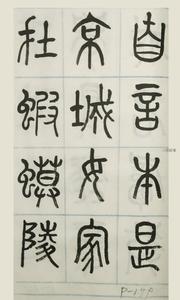 自言本是
京城女家
在蝦蟆陵
P-149